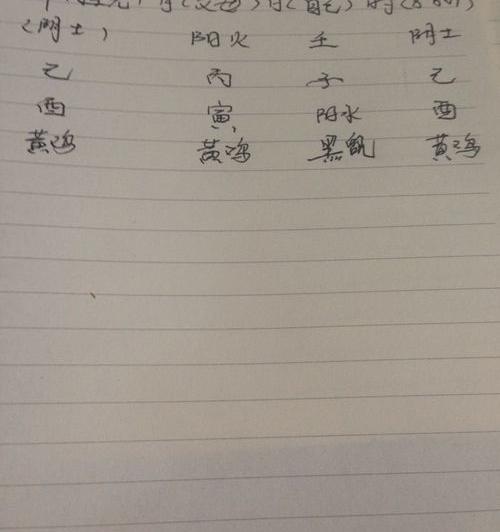 (阴土) 阳火 壬 阴土
己 丙 子 己
酉 寅 阳水 酉
黄鸡 黄鸡 黑鼠 黄鸡